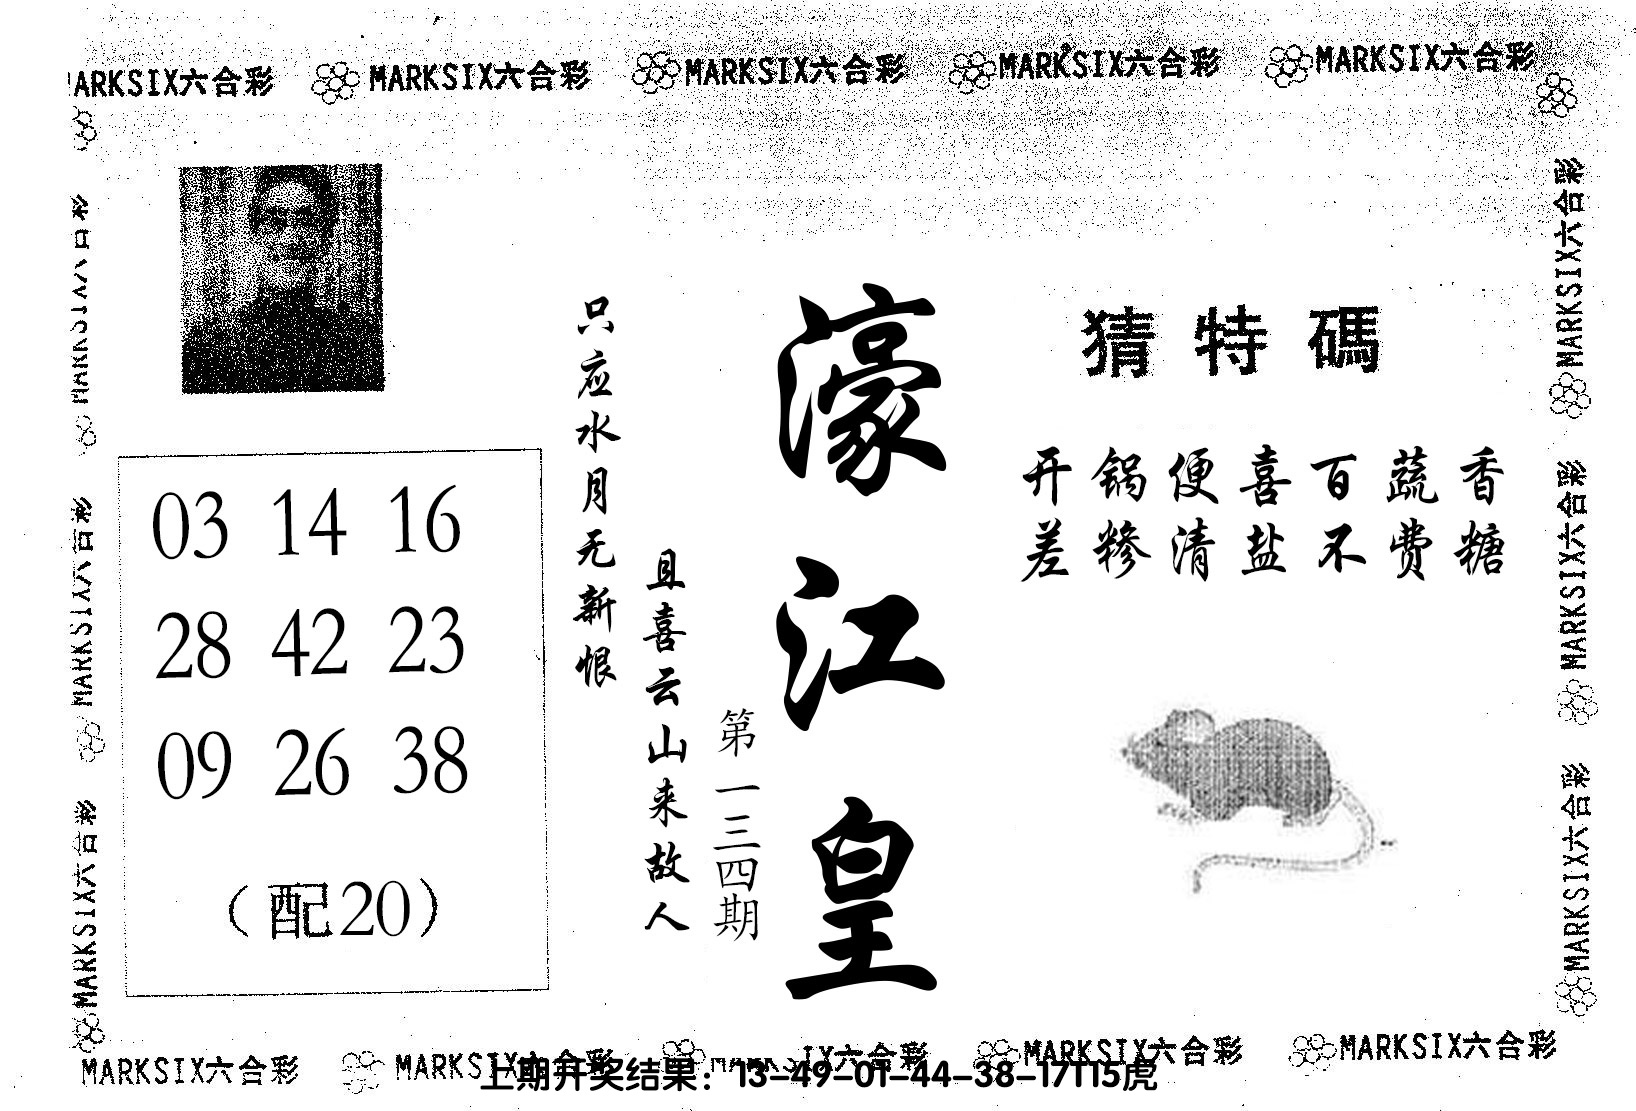 MARKSIX六合彩 MARKSIX六合彩 MARKSIX六合彩 MARKSIX六合彩 MARKSIX六合彩
猜特碼
开锅便喜百蔬香
差糁清盐不费糖
濠江皇
第一三四期
只应水月无新恨
且喜云山来故人
03 14 16
28 42 23
09 26 38
（配20）
MARKSIX六合彩
MARKSIX六合彩
MARKSIX六合彩
MARKSIX六合彩
MARKSIX六合彩
MARKSIX六合彩
MARKSIX六合彩 MARKSIX六合彩 MARKSIX六合彩 MARKSIX六合彩
上期开奖结果：13-49-01-44-38-17T15虎